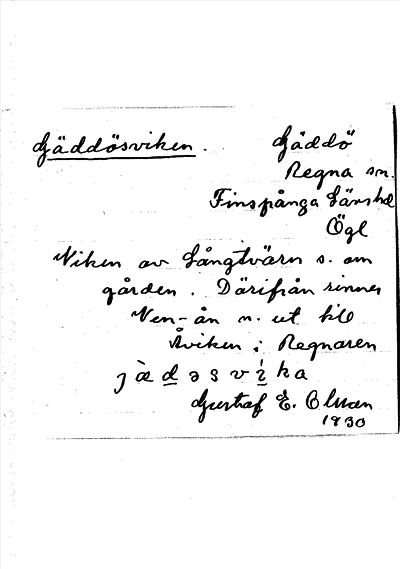 Gäddösviken. Gäddö
Regna sn.
Finspånga Länshd
Ögl
Viken av Långtvärn s. om
gården. Därifrån rinner
Ven-ån n. ut till
Åviken i Regnaren
jàdəsvíka
Gustaf E. Olsson
1930